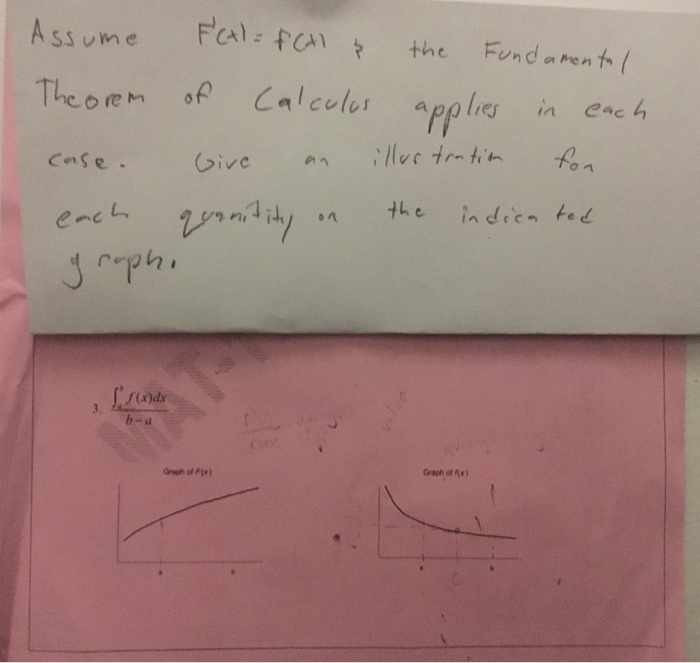 Assume F'(x) = f(x) & the Fundamental
Theorem of Calculus applies in each
case. Give an illustration for
each quanitity on the indicated
graph.
MAT-1
3. ∫ₐᵇ f(x)dx
b-a
value
Graph of F(x) Graph of f(x)
a b a c b